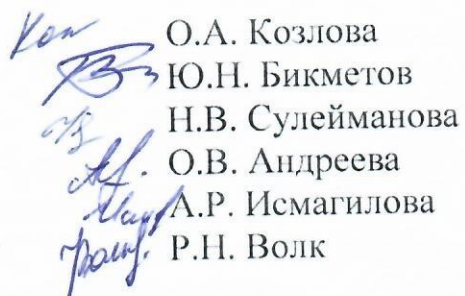 О.А. Козлова
Ю.Н. Бикметов
Н.В. Сулейманова
О.В. Андреева
А.Р. Исмагилова
Р.Н. Волк